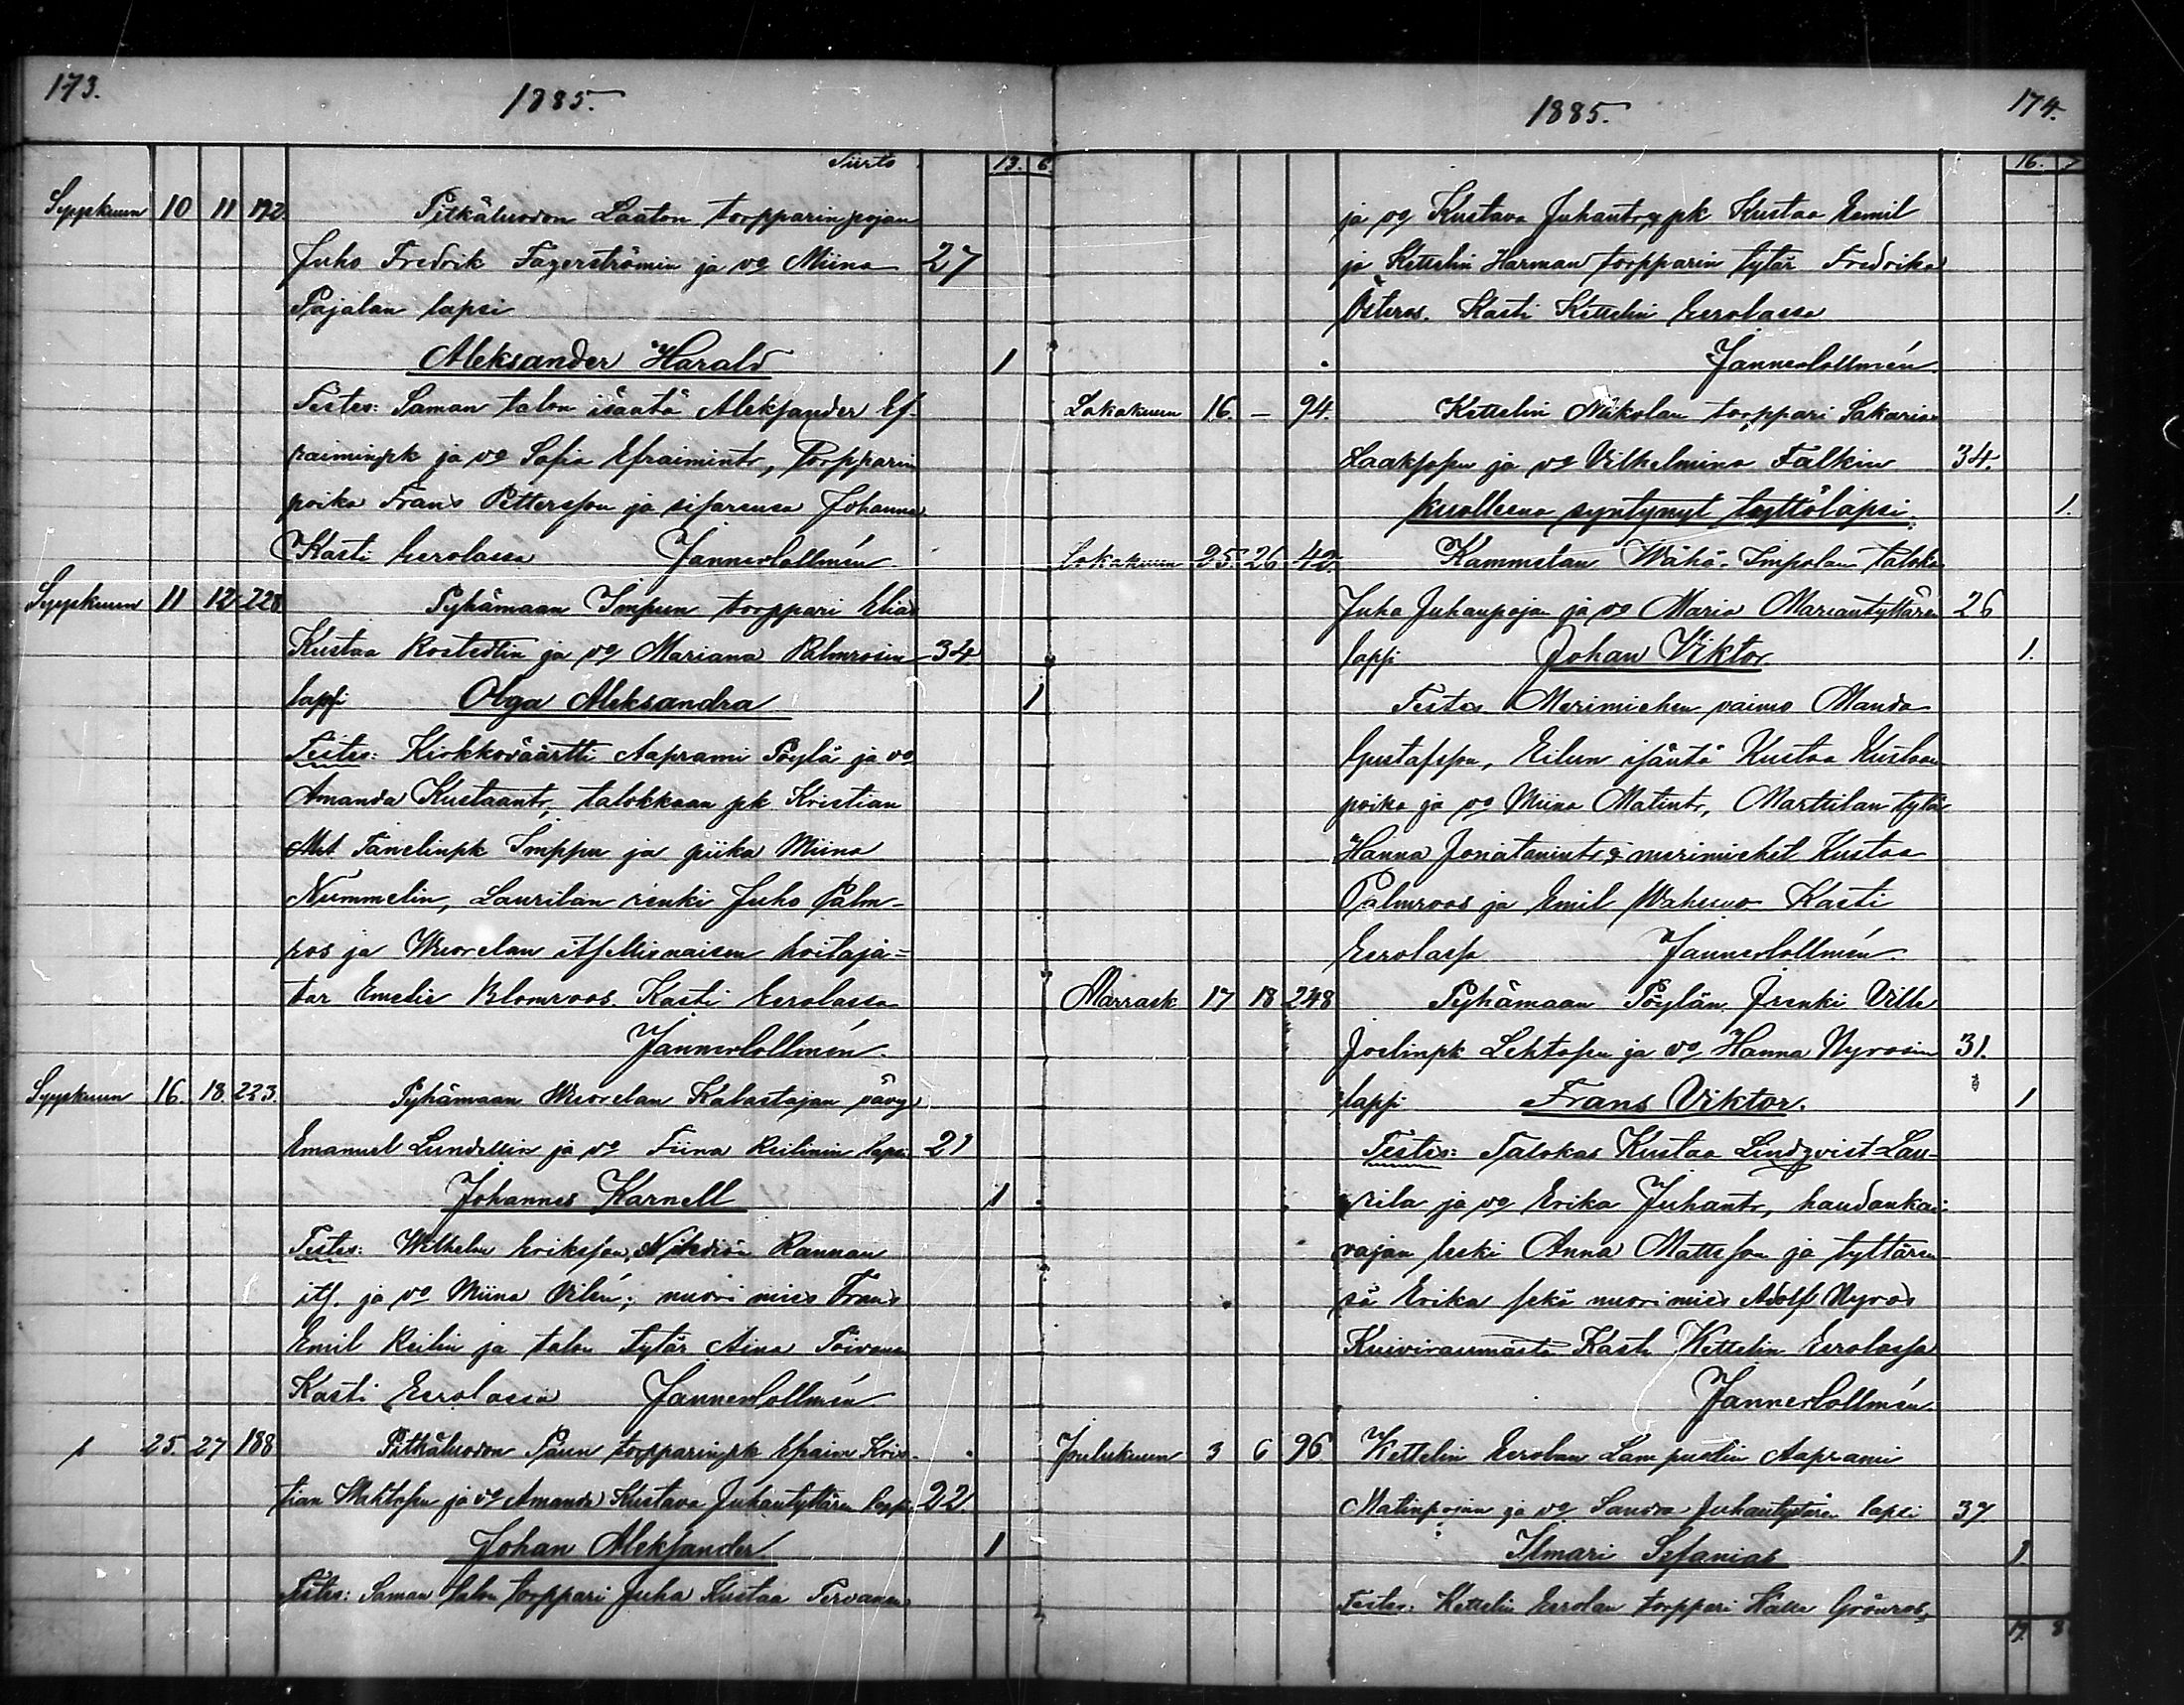 173.
1885.
Siirto 13. 6
Syyskuun 10 11 192. Pitkäluodon Laaton torpparin pojan
Juho Fredrik Fagerströmin ja vo Miina 27
Pajalan lapsi
Aleksander Harald 1
Testes: Saman talon isäntä Aleksander Ef-
raiminpk ja vo Sofia Efraimintr, Torpparin
poika Frans Pettersson ja sisarensa Johanna
Kasti Eerolassa Janne Collmén
Syyskuun 11 12 228 Pyhämaan Impun torppari Elias
Kustaa Rostedtin ja vo Mariana Palmrosin 34
lapsi Olga Aleksandra 1
Testes: Kirkkoväärtti Aaprami Pöylä ja vo
Amanda Kustaantr, talokkaan pk Kristian
Tanelinpk Imppu ja piika Miina
Nummelin, Laurilan renki Juho Palm-
ros ja Wuorelan itsellisnaisen hoitaja-
tar Emelie Blomroos. Kasti Eerolassa
Janne Collmén.
Syyskuun 16. 18. 223. Pyhämaan Wuorelan Kalastajan
Emanuel Lundellin ja vo Fiina Reilinin lapsi 21
Johannes Karnell 1
Testes: Wilhelm Eriksson, Rannan
its. ja vo Miina Vilén; nuori mies Frans
Emil Reilin ja talon tytär Aina Toivonen
Kasti Eerolassa Janne Collmén
25. 27 188 Pitkäluodon Paun torpparinpk Efraim Kris-
tian Mahtosen ja vo Amanda Kustava Juhantyttären lapsi 22.
Johan Aleksander 1
Testes: Saman talon torppari Juha Kustaa Tervanen
1885.
174.
16. 7
ja vo Kustava Juhantr, pk Kustaa Eemil
ja Kettelin Harman torpparin tytär Fredrika
Österos. Kasti Kettelin Eerolassa
Janne Collmén.
Lokakuun 16. – 94. Kettelin Nikolan torppari Sakarias
Laaksosen ja vo Vilhelmina Falkin 34.
Kuolleena syntynyt tyttölapsi. 1.
Lokakuun 25. 26 42. Kammelan Wähä-Impolan talokas
Juha Juhanpojan ja vo Maria Mariantyttären 26
lapsi Johan Viktor 1.
Testes Merimiehen vaimo Manda
Gustafsson, Eilun isäntä Kustaa Kustaan
poika ja vo Miina Matintr, Marttilan tytär
Hanna Jonatanintr, & merimiehet Kustaa
Palmroos ja Emil Kasti
Eerolassa Janne Collmén.
Marrask 17 18 248 Pyhämaan Pöylän renki Ville
Joelinpk Lehtosen ja vo Hanna Nyrosin 31.
lapsi Frans Viktor. 1
Testes: Talokas Kustaa Lindqvist Lau-
rila ja vo Erika Juhantr, haudankai-
vajan leski Anna Mattsson ja tyttären-
sä Erika sekä nuori mies Adolf Nyros
Kuiviraumasta Kasti Kettelin Eerolassa
Janne Collmén
Joulukuun 3 6 96 Kettelin Eerolan Lampuotin Aaprami
Matinpojan ja vo Sandra Juhantyttären lapsi 37
Ilmari Sefanias 1
Testes: Kettelin Eerolan torppari Kalle Grönros,
19. 8